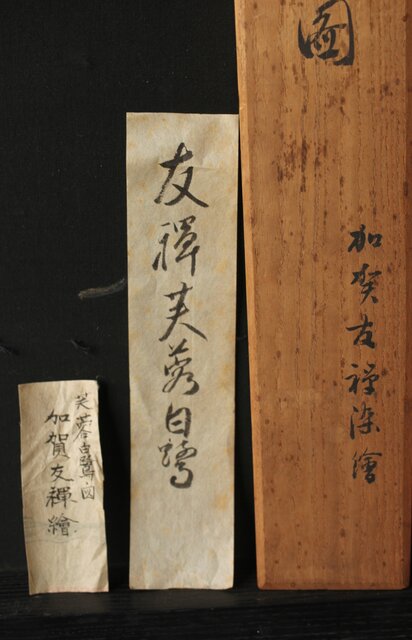 圖
加賀友禅染繪
友禪芙蓉白鷺
芙蓉白鷺図
加賀友禪繪